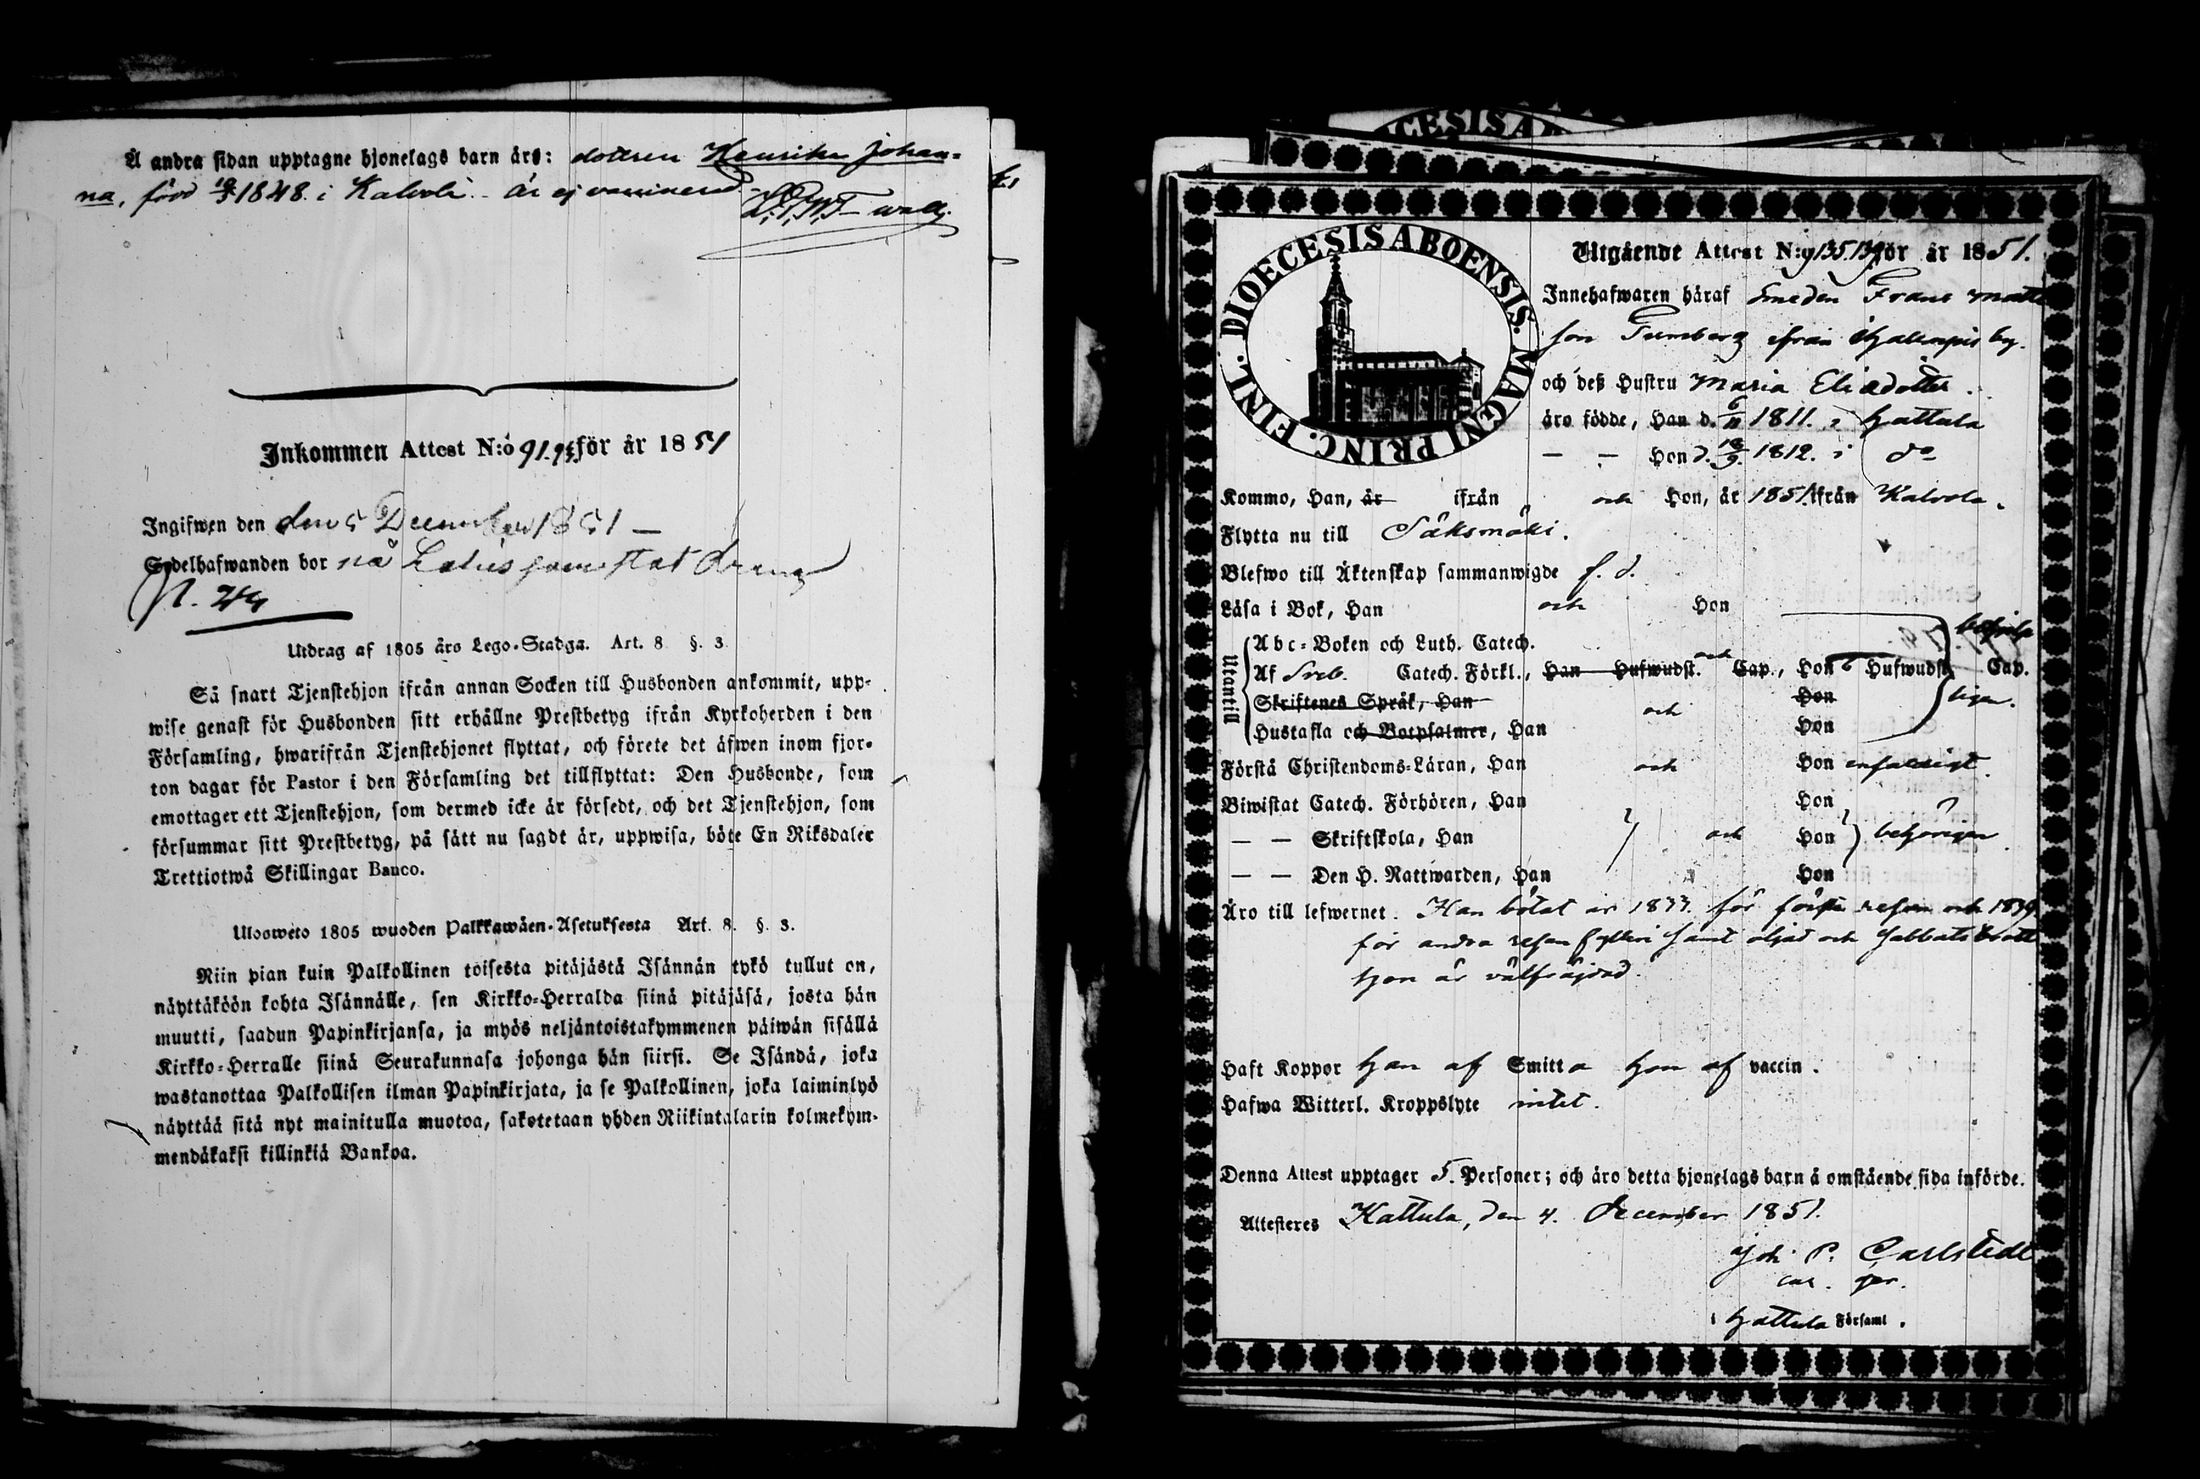 Å andra sidan upptagne hjonelags barn äro: dottren Henrika Johan-
na, född 19/3 1848. i Kalvola - är ej vaccinerad
Inkommen Attest N:o 91.95 för år 1851
Ingifwen den den 5 December 1851 —
Sedelhafwanden bor på
N. 24
Utdrag af 1805 års Lego-Stadga. Art. 8 §. 3
Så snart Tjenstehjon ifrån annan Socken till Husbonden ankommit, upp-
wise genast för Husbonden sitt erhållne Prestbetyg ifrån Kyrkoherden i den
Församling, hwarifrån Tjenstehjonet flyttat, och förete det äfwen inom fjor-
ton dagar för Pastor i den Församling det tillflyttat: Den Husbonde, som
emottager ett Tjenstehjon, som dermed icke är försedt, och det Tjenstehjon, som
försummar sitt Prestbetyg, på sätt nu sagdt är, uppwisa, böte En Riksdaler
Trettiotwå Skillingar Banco.
Ulosweto 1805 wuoden Palkkawäen-Asetuksesta Art. 8. §. 3.
Niin pian kuin Palkollinen toisesta pitäjästä Isännän tykö tullut on,
näyttäköön kohta Isännälle, sen Kirkko-Herralda siinä pitäjäsä, josta hän
muutti, saadun Papinkirjansa, ja myös neljäntoistakymmenen päiwän sisällä
Kirkko-Herralle siinä Seurakunnasa johonga hän siirsi. Se Isändä, joka
wastanottaa Palkollisen ilman Papinkirjata, ja se Palkollinen, joka laiminlyö
näyttää sitä nyt mainitulla muotoa, sakotetaan yhden Riikintalarin kolmekym-
mendäkaksi killinkiä Bankoa.
DIOECESIS ABOENSIS. MAGNI PRINC. FINL.
Utgående Attest N:o 135.139 för år 1851.
Innehafwaren häraf Smeden Frans Matts
son ifrån by.
och deß Hustru Maria Eliædotter.
äro födde, Han d. 6/11 1811. i Hattula
— — Hon d. 18/9. 1812. i do
Kommo, Han, är ifrån och Hon, år 1851. ifrån Kalvola.
Flytta nu till Sääksmäki.
Blefwo till Äktenskap sammanwigde f. d.
Läsa i Bok, Han och Hon
Utantill
Abc-Boken och Luth. Catech.
Af Sveb. Catech. Förkl., Han Hufwudst. och Cap., Hon 6 Hufwudst. Cap.
Skriftenes Språk, Han Hon
Hustafla och Botpsalmer, Han och Hon
Förstå Christendoms-Läran, Han och Hon enfaldigt.
Biwistat Catech. Förhören, Han Hon
— — Skriftskola, Han och Hon behörigen
— — Den H. Nattwarden, Han Hon
Äro till lefwernet. Han bötat år 1833. för första resan och 1839.
för andra resan fylleri samt oljud och sabbatsbrott
Hon är välfräjdad.
Haft Koppor Han af Smitta Hon af vaccin.
Hafwa Witterl. Kroppslyte intet.
Denna Attest upptager 5. Personer; och äro detta hjonelags barn å omstående sida införde.
Attesteres Hattula, den 4. December 1851.
Joh. P. Carlstedt
i Hattula Församl.